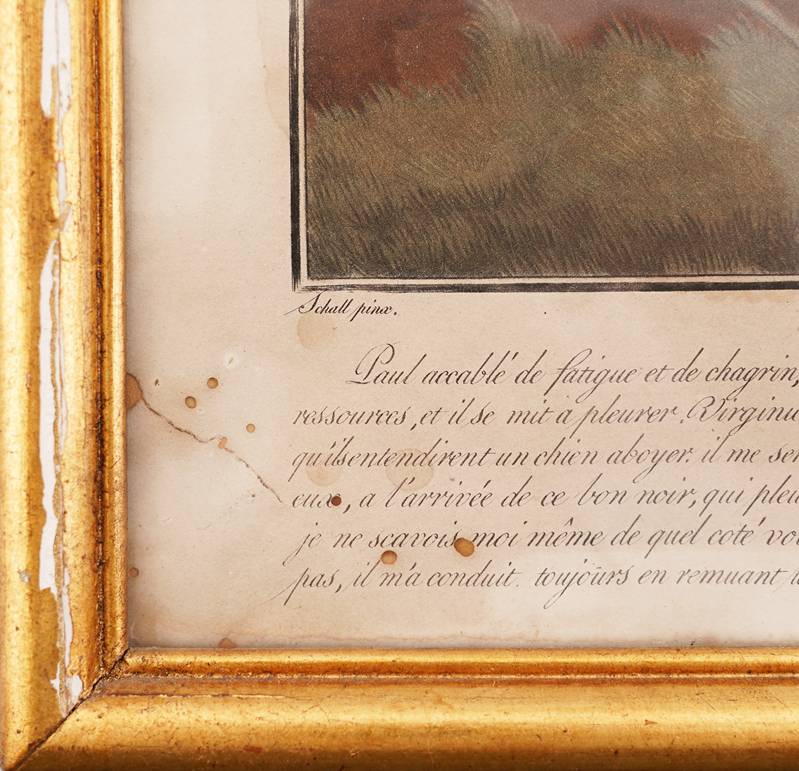 Schall pinx.
Paul accablé de fatigue et de chagrin,
ressources, et il se mit a pleurer. Virginie
qu'ils entendirent un chien aboyer. il me
eux, a l'arrivée de ce bon noir, qui
je ne scavois moi même de quel coté
pas, il m'a conduit. toujours en remuant